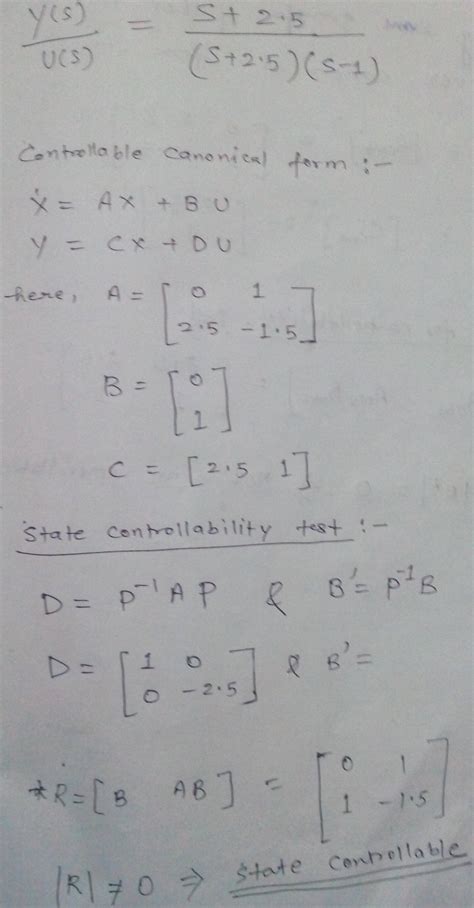 Y(S) / U(S) = S + 2.5 / (S+2.5)(S-1)
Controllable canonical form :-
Ẋ = AX + BU
Y = CX + DU
here, A = [ 0 1 ; 2.5 -1.5 ]
B = [ 0 ; 1 ]
C = [ 2.5 1 ]
State controllability test :-
D = P⁻¹ A P & B' = P⁻¹B
D = [ 1 0 ; 0 -2.5 ] & B' =
* R = [ B AB ] = [ 0 1 ; 1 -1.5 ]
|R| ≠ 0 ⇒ State controllable